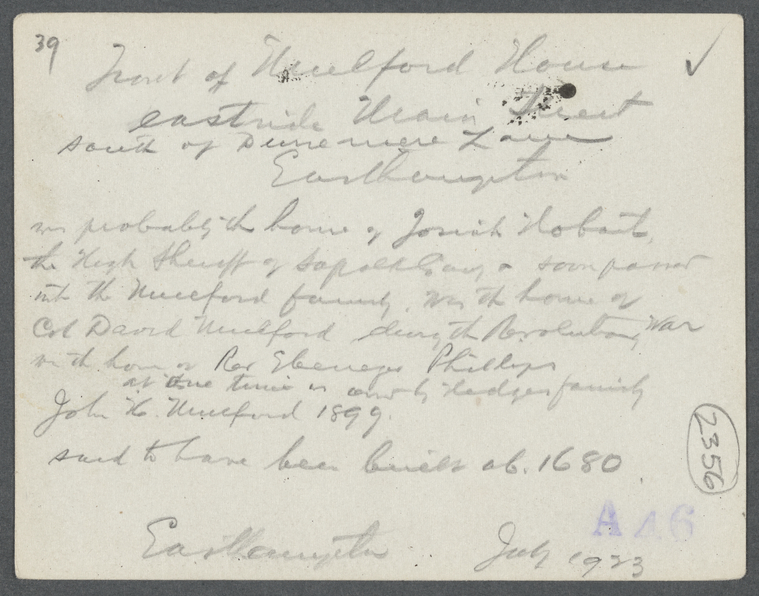 39
Front of Mulford House ✓
eastside Main Street
south of Dunemere Lane
Easthampton
was probably th home of Josiah Hobart,
the High Sheriff of Suffolk County & soon passed
into the Mulford family. was th home of
Col David Mulford during th Revolution War
was th home of Rev Ebenezer Phillips
at one time owned by Hedges family
John H. Mulford 1899.
said to have been built ab. 1680
2356
A 46
Easthampton July 1923